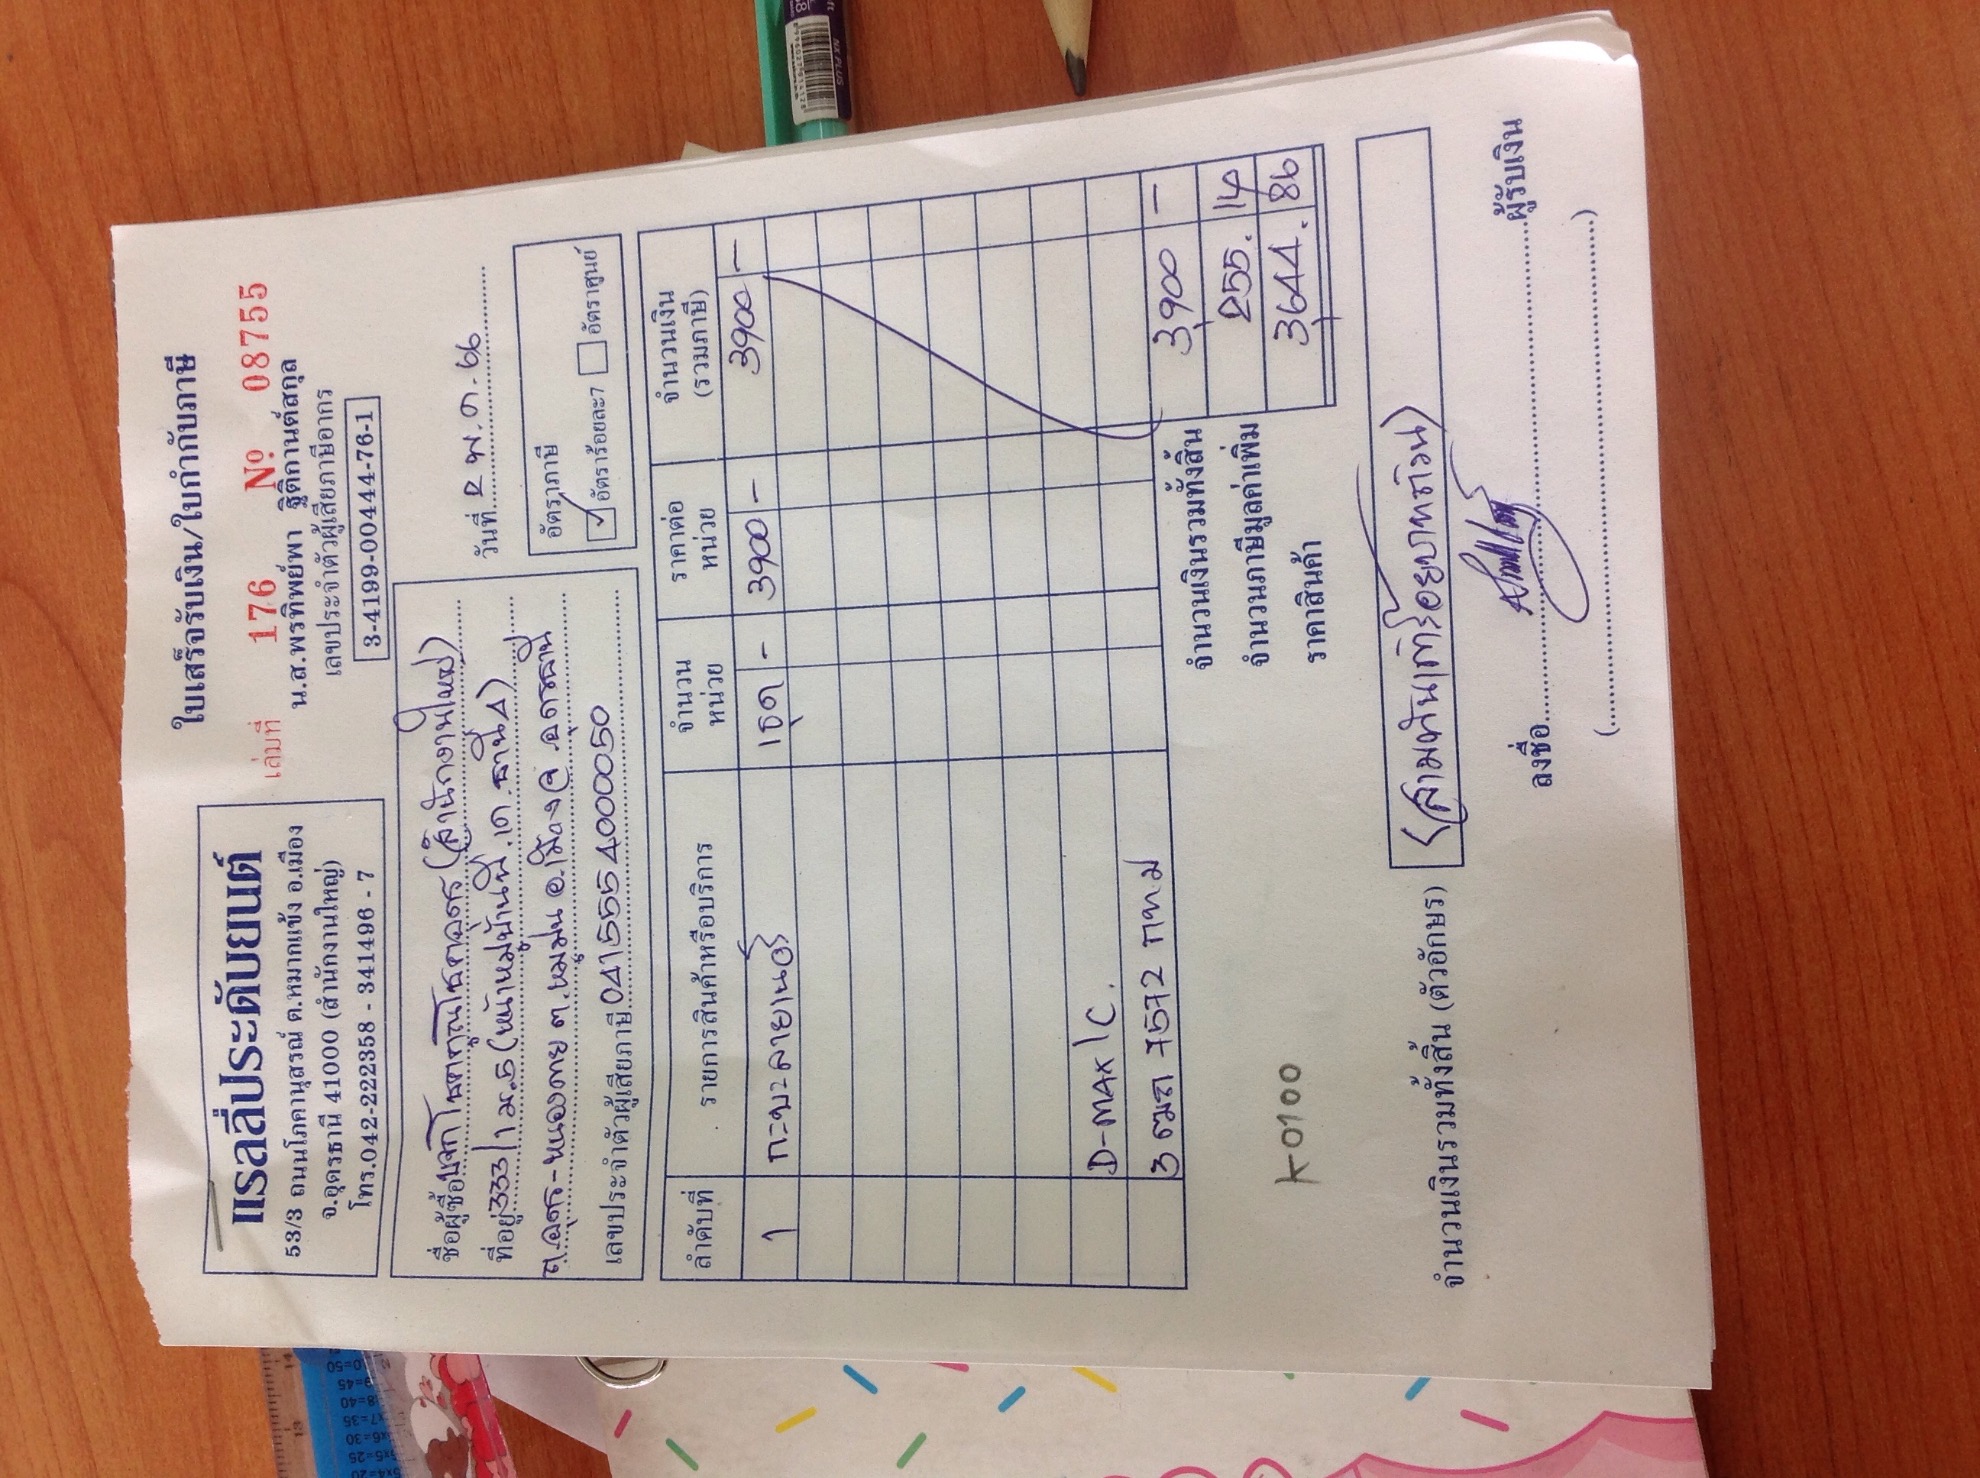 แรลลี่ประดับยนต์
53/3 ถนนโภคานุสรณ์ ต.หมากแข้ง อ.เมือง
จ.อุดรธานี 41000 (สำนักงานใหญ่)
โทร.042-222358 - 341496 - 7
ใบเสร็จรับเงิน/ใบกำกับภาษี
เล่มที่ 176 Nº 08755
น.ส.พรทิพย์พา ฐิติกานต์สกุล
เลขประจำตัวผู้เสียภาษีอากร
3-4199-00444-76-1
ชื่อผู้ซื้อ บจก โชคคูณโชคอุดร (สำนักงานใหญ่)
ที่อยู่ 333/1 ม.5 (หน้าหมู่บ้านพี.เค.ธานี 4)
ถ.อุดร-หนองคาย ต.หมูม่น อ.เมือง จ.อุดรธานี
เลขประจำตัวผู้เสียภาษี 0415554000050
วันที่ 2 พ.ค. 66
อัตราภาษี
อัตราร้อยละ7 อัตราศูนย์
ลำดับที่ รายการสินค้าหรือบริการ จำนวนหน่วย ราคาต่อหน่วย จำนวนเงิน (รวมภาษี)
1 กะบะลายเนอร์ 1ชุด - 3900 - 3900 -
D-MAX/C.
3ฒถ 7572 กทม
จำนวนเงินรวมทั้งสิ้น 3,900 -
จำนวนภาษีมูลค่าเพิ่ม 255. 14
ราคาสินค้า 3,644. 86
K0100
จำนวนเงินรวมทั้งสิ้น (ตัวอักษร) (สามพันเก้าร้อยบาทถ้วน)
ลงชื่อ ผู้รับเงิน
( )